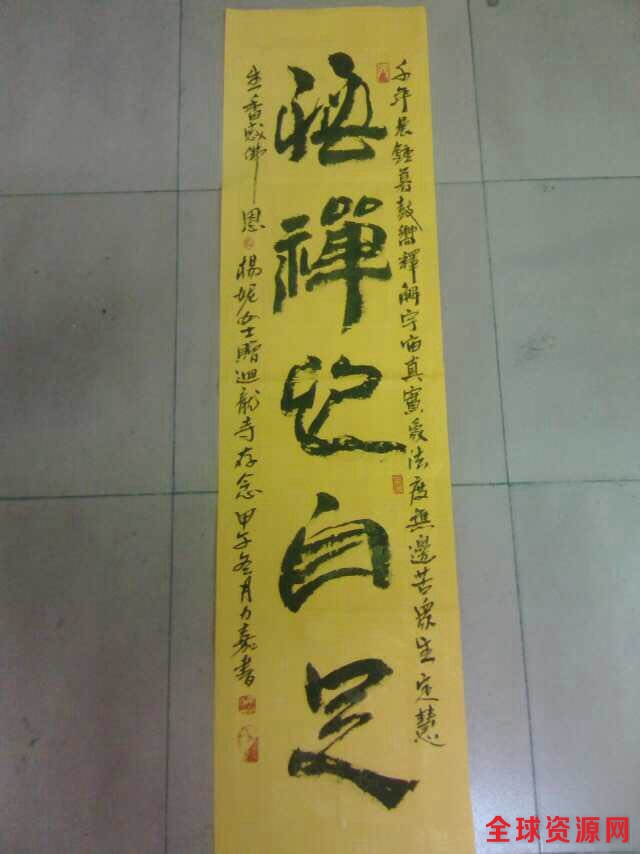 千年晨鐘暮鼓響釋解宇宙真實法度無邊苦眾生定慧
禪心自足
生香感佛恩 楊妮女士贈迴龍寺存念 甲午冬月力嘉書
全球资源网